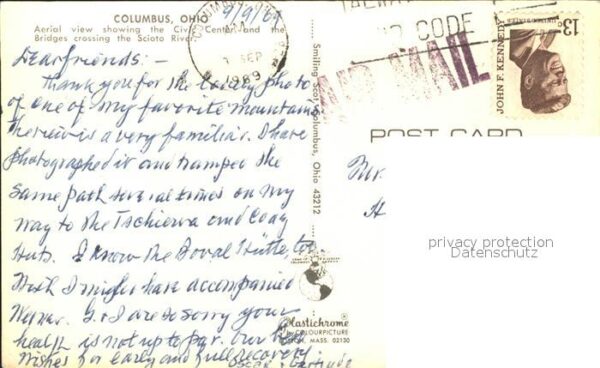 COLUMBUS, OHIO
Aerial view showing the Civic Center and the
Bridges crossing the Scioto River.
9/9/69
SEP
1969
ZIP CODE
AIR MAIL
13c
UNITED STATES
JOHN F. KENNEDY
POST CARD
Dear friends: —
Thank you for the lovely photo
of one of my favorite mountains.
The view is a very familiar. I have
photographed it and tramped the
same path several times on my
way to the Tschierva and Coaz
Huts. I know the Boval Hütte, too.
Wish I might have accompanied
Werner. G. & I are so sorry your
health is not up to par. Our best
wishes for early and full recovery
Oscar + Gertrude
Smiling Scot, Columbus, Ohio 43212
Mr.
H
privacy protection
Datenschutz
Plastichrome
by COLOURPICTURE
BOSTON, MASS. 02130